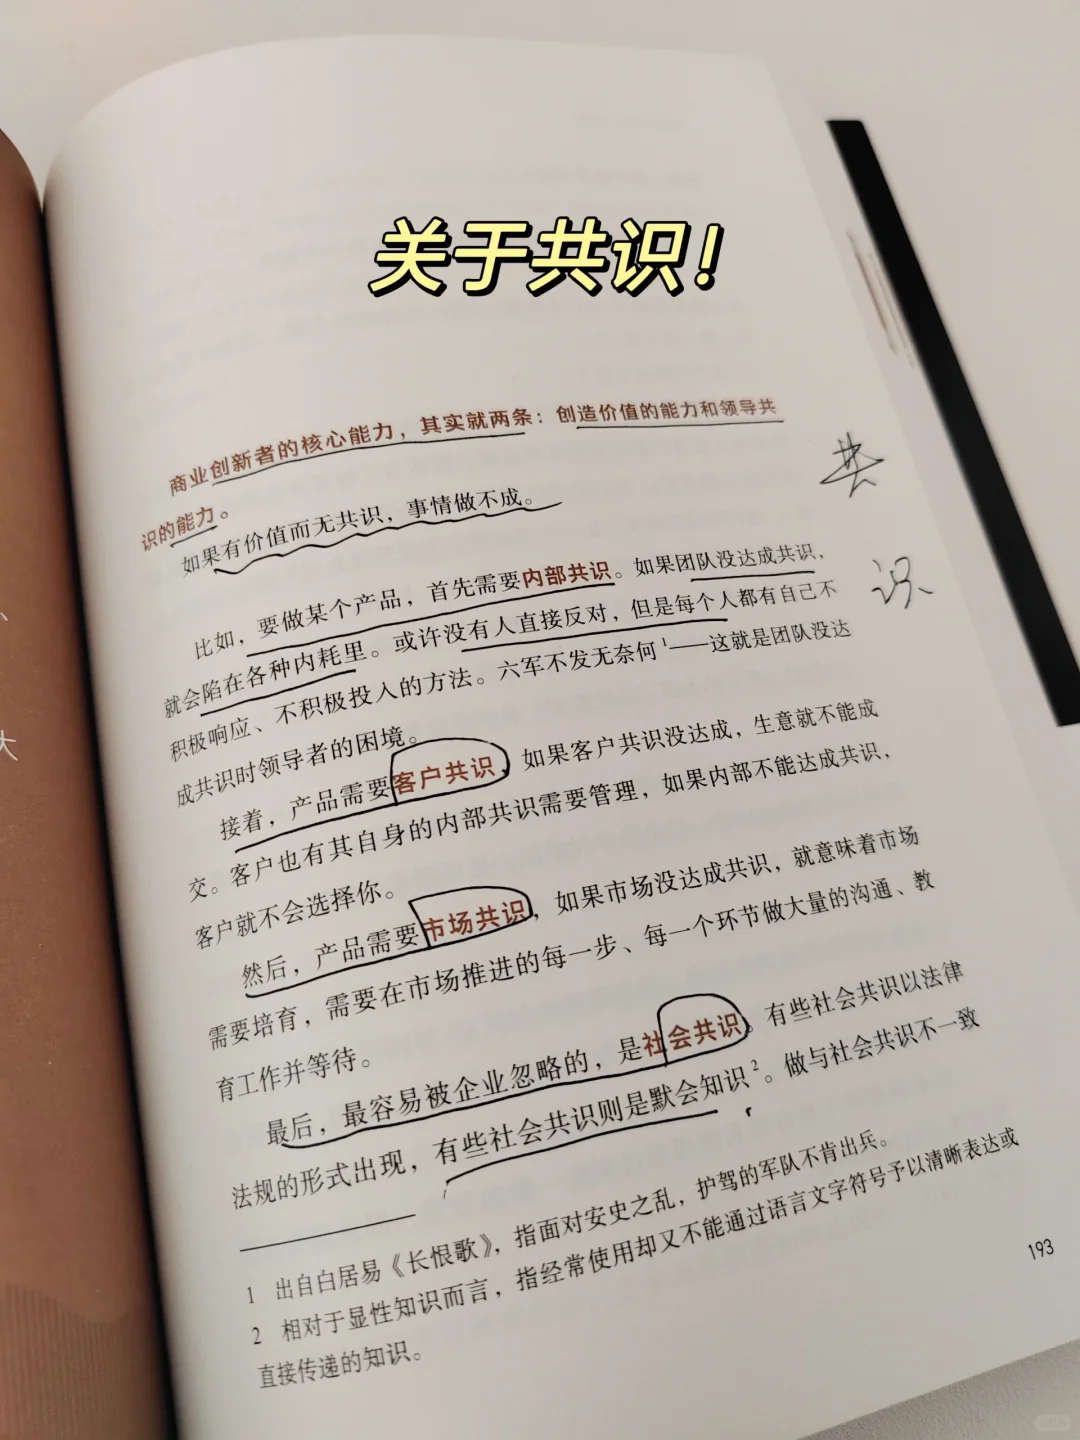 关于共识！
商业创新者的核心能力，其实就两条：创造价值的能力和领导共
识的能力。
如果有价值而无共识，事情做不成。
比如，要做某个产品，首先需要内部共识。如果团队没达成共识，
就会陷在各种内耗里。或许没有人直接反对，但是每个人都有自己不
积极响应、不积极投入的方法。六军不发无奈何1——这就是团队没达
成共识时领导者的困境。
接着，产品需要客户共识，如果客户共识没达成，生意就不能成
交。客户也有其自身的内部共识需要管理，如果内部不能达成共识，
客户就不会选择你。
然后，产品需要市场共识，如果市场没达成共识，就意味着市场
需要培育，需要在市场推进的每一步、每一个环节做大量的沟通、教
育工作并等待。
最后，最容易被企业忽略的，是社会共识。有些社会共识以法律
法规的形式出现，有些社会共识则是默会知识2。做与社会共识不一致
1 出自白居易《长恨歌》，指面对安史之乱，护驾的军队不肯出兵。
2 相对于显性知识而言，指经常使用却又不能通过语言文字符号予以清晰表达或
直接传递的知识。
193
共
识
大